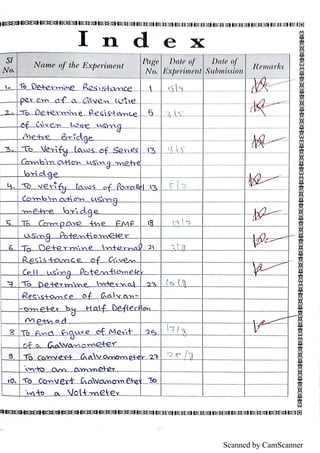 Index
Sl No. Name of the Experiment Page No. Date of Experiment Date of Submission Remarks
1. To Determine Resistance 1
per cm of a Given Wire
2. To Determine Resistance 5
of Given Wire using
Metre Bridge
3. To Verify laws of Series 13
Combination using metre
bridge
4. To verify laws of Parallel 13
Combination using
metre bridge
5 To Compare the EMF 18
using Potentiometer
6. To Determine Internal 21
Resistance of Given
Cell using Potentiometer
7. To Determine Internal 23
Resistance of Galvan-
ometer by Half Deflection
Method
8 To Find Figure of Merit 25
of a Galvanometer
9. To convert Galvanometer 27
into an ammeter.
10. To Convert Galvanometer 30
into a Voltmeter
Scanned by CamScanner